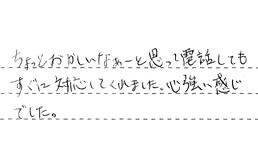 ちょっとおかしいなぁーと思って電話しても
すぐに対応してくれました。心強い感じ
でした。